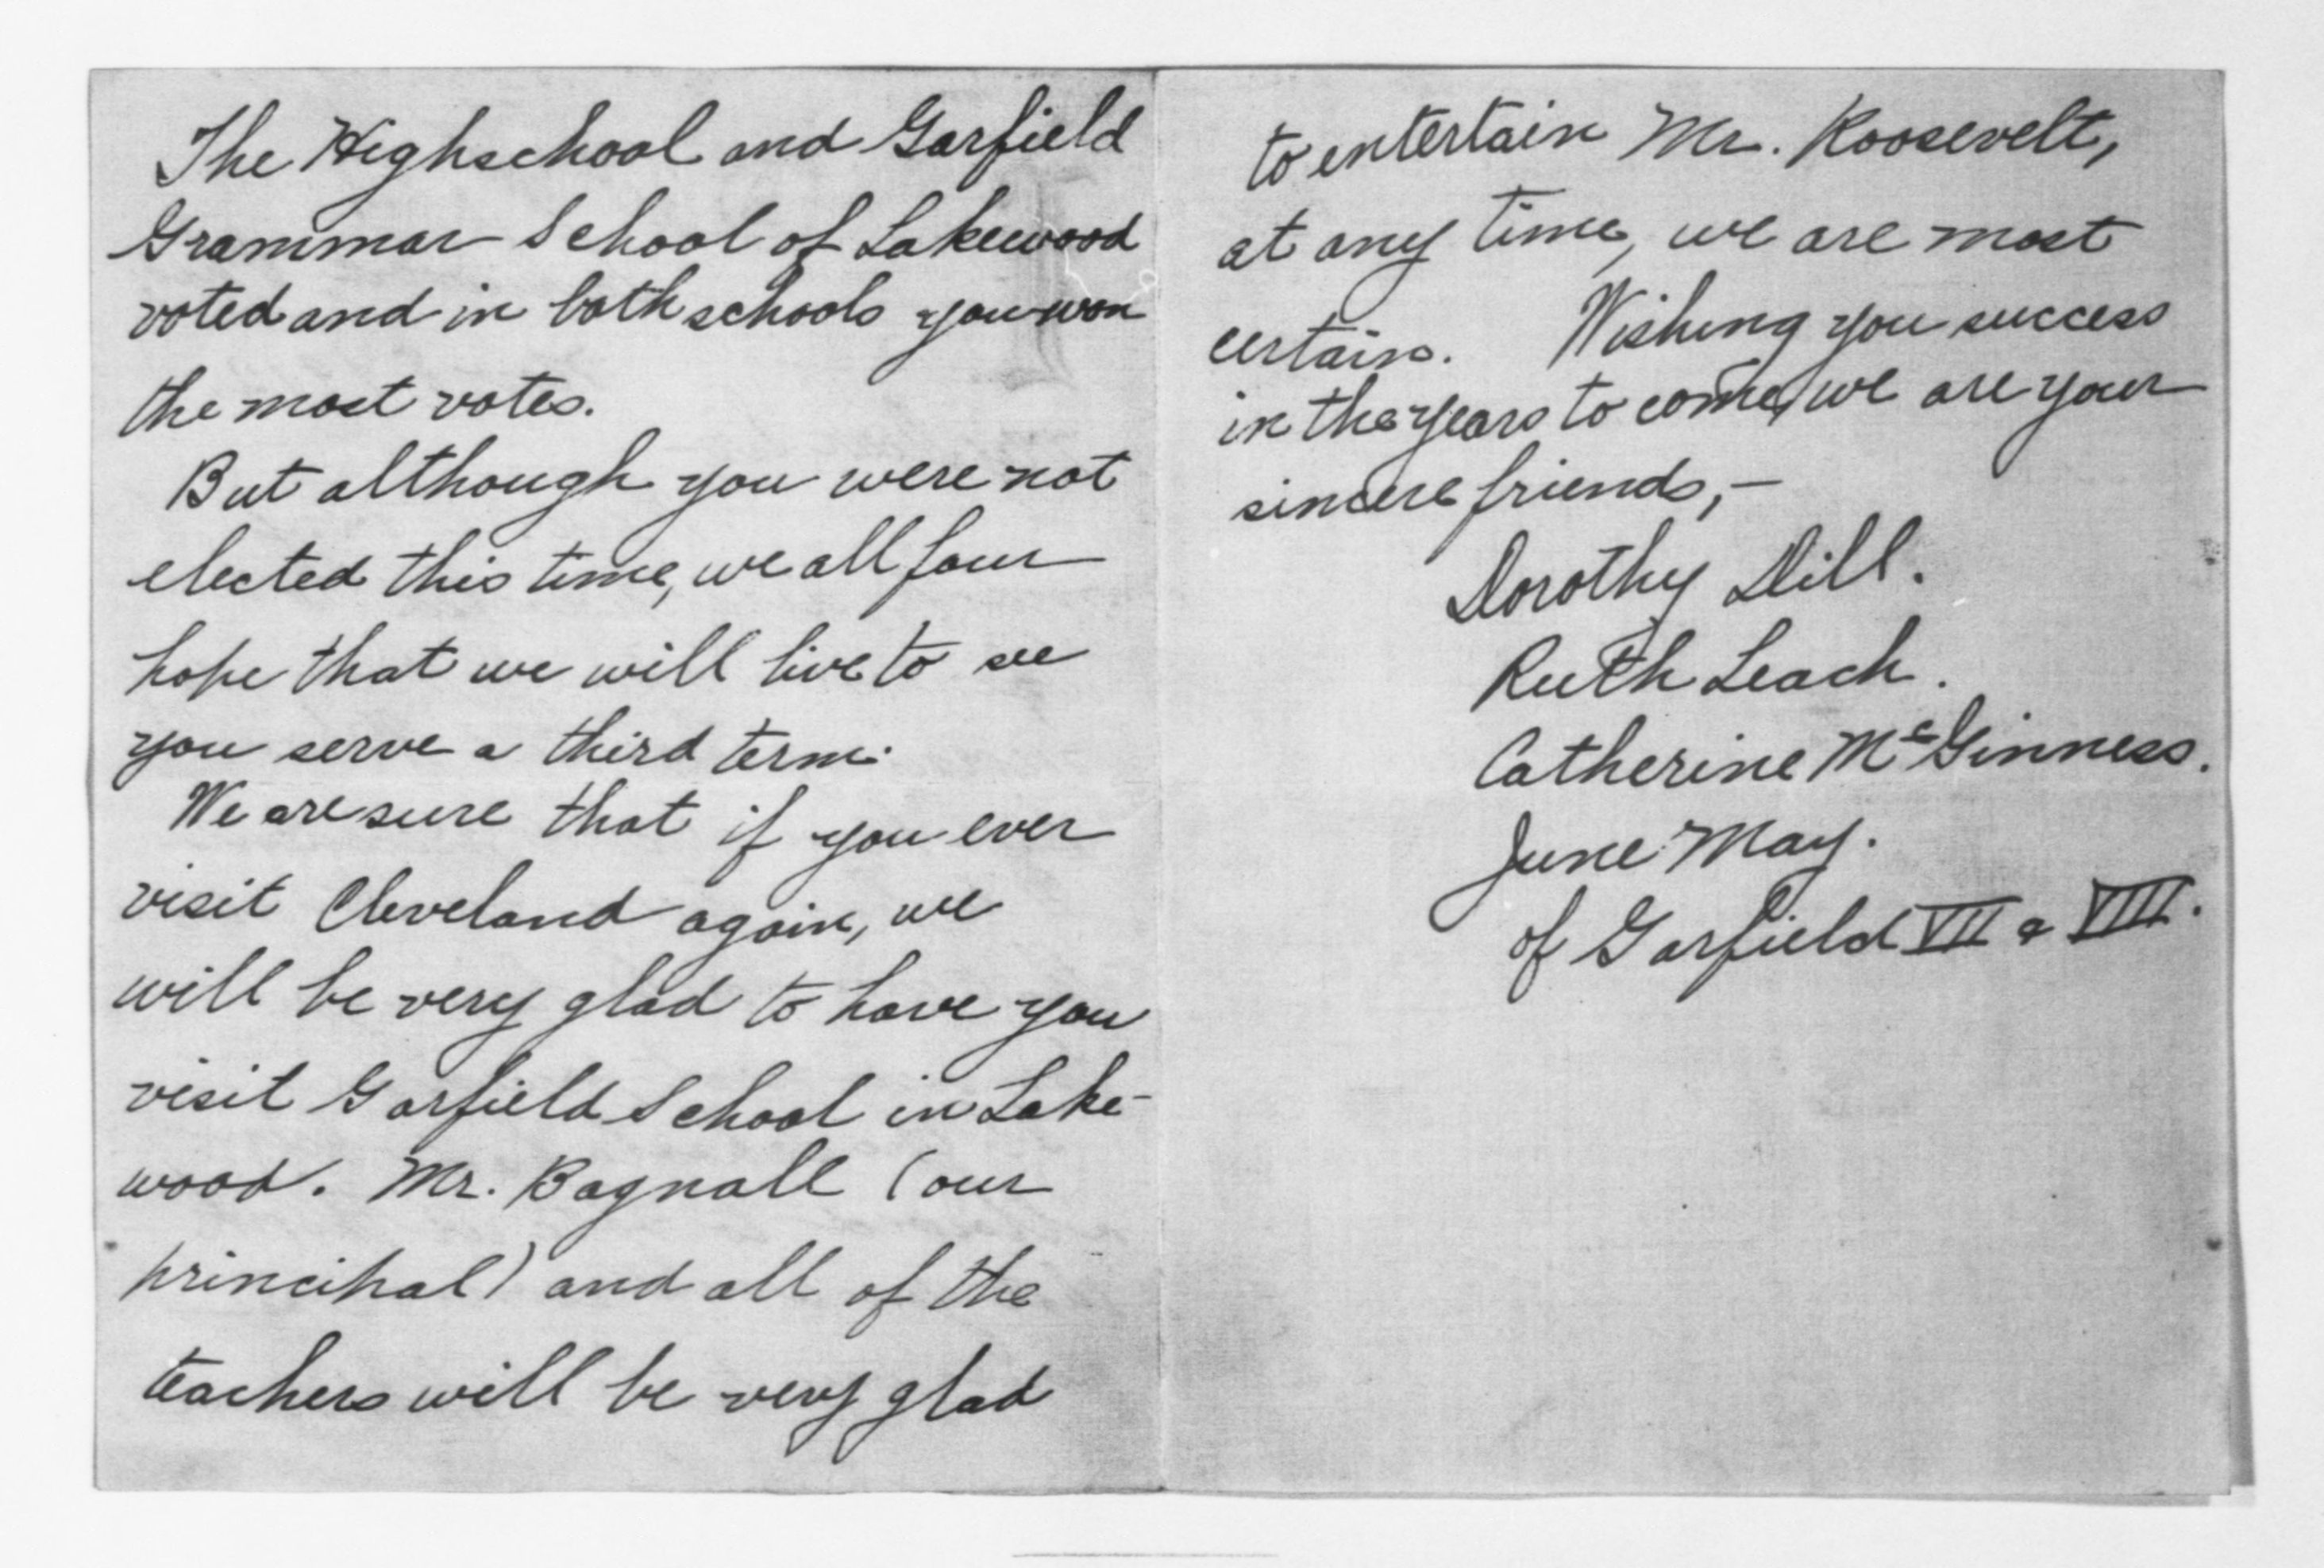 The Highschool and Garfield
Grammar School of Lakewood
voted and in both schools you won
the most votes.
But although you were not
elected this time, we all four
hope that we will live to see
you serve a third term.
We are sure that if you ever
visit Cleveland again, we
will be very glad to have you
visit Garfield School in Lake-
wood. Mr. Bagnall (our
principal) and all of the
teachers will be very glad
to entertain Mr. Roosevelt,
at any time, we are most
certain. Wishing you success
in the years to come, we are your
sincere friends,-
Dorothy Dill.
Ruth Leach.
Catherine McGinness.
June May.
of Garfield VII & VIII.